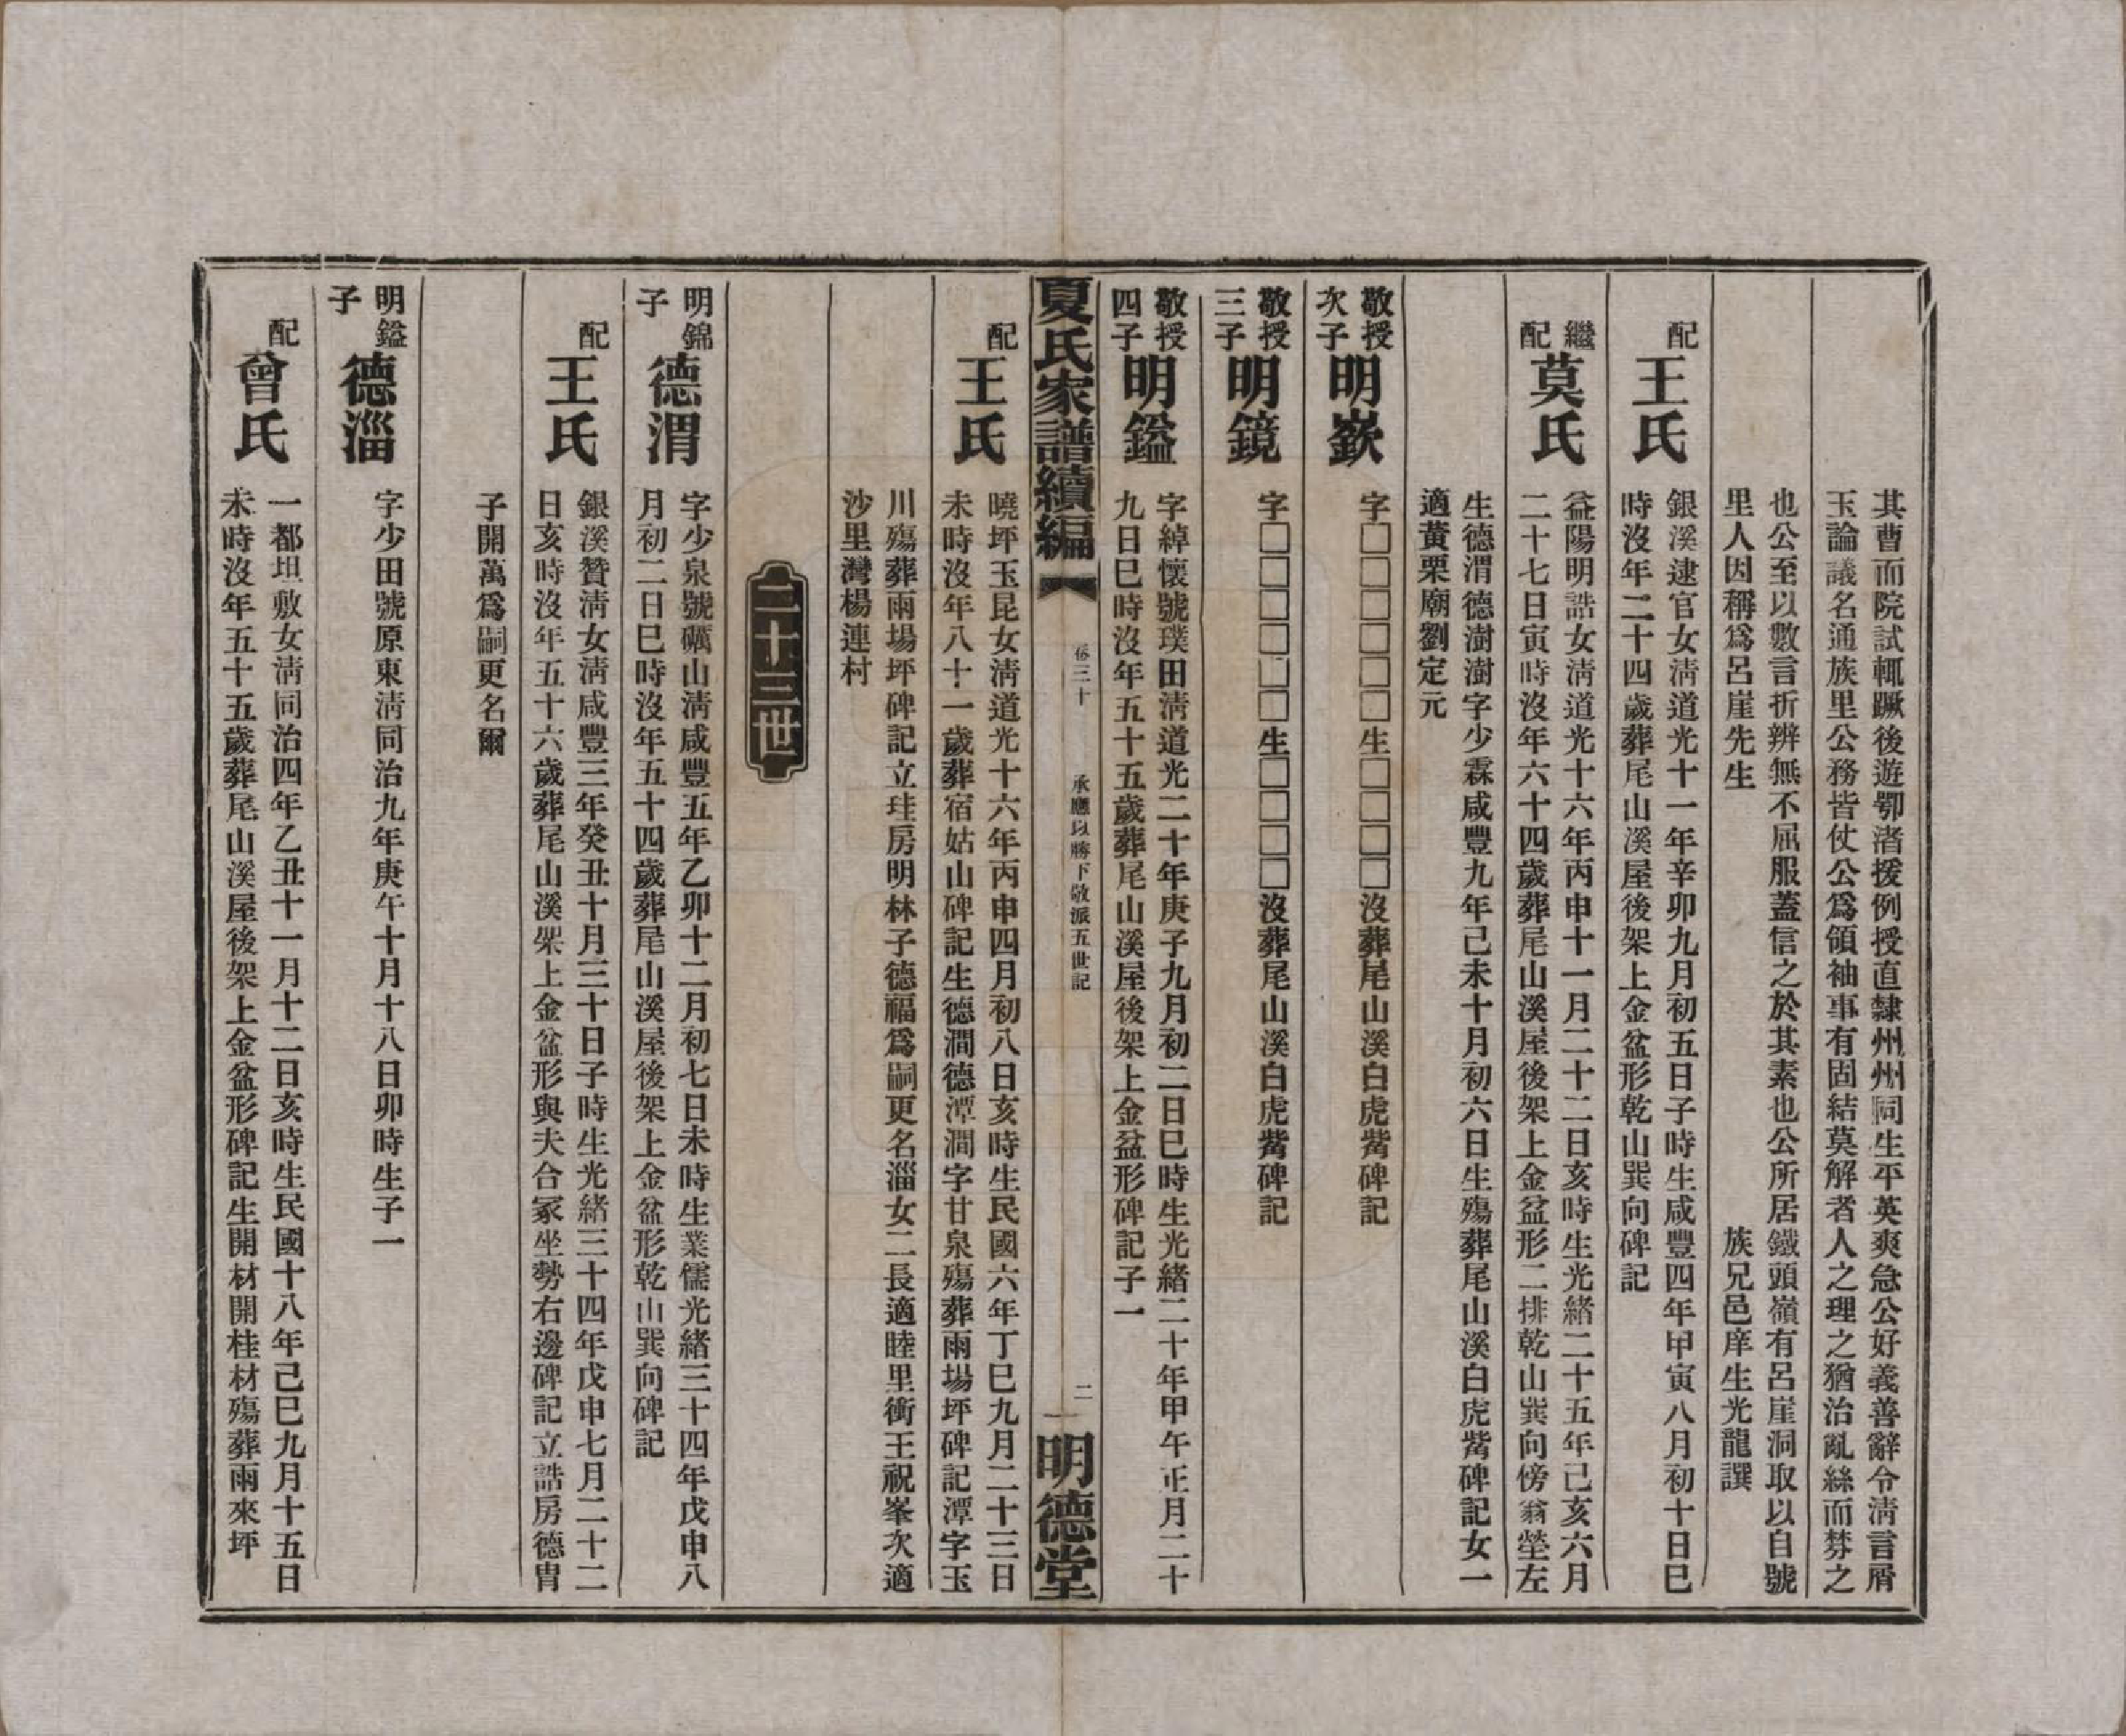 其曹而院試輒蹶後遊鄂渚援例授直隸州州同生平英爽急公好義善辭令淸言屑
玉論議名通族里公務皆仗公爲領袖事有固結莫解者人之理之猶治亂絲而棼之
也公至以數言折辨無不屈服蓋信之於其素也公所居鐵頭嶺有呂崖洞取以自號
里人因稱爲呂崖先生　族兄邑庠生光龍譔
配王氏
銀溪逮官女淸道光十一年辛卯九月初五日子時生咸豐四年甲寅八月初十日巳
時沒年二十四歲葬尾山溪屋後架上金盆形乾山巽向碑記
繼配莫氏
益陽明誥女淸道光十六年丙申十一月二十二日亥時生光緒二十五年己亥六月
二十七日寅時沒年六十四歲葬尾山溪屋後架上金盆形二排乾山巽向傍翁塋左
生德渭德澍澍字少霖咸豐九年己未十月初六日生殤葬尾山溪白虎觜碑記女一
適黃栗廟劉定元
敬授次子明嶔
字□□□□□□生□□□□沒葬尾山溪白虎觜碑記
敬授三子明鏡
字□□□□□□生□□□□沒葬尾山溪白虎觜碑記
敬授四子明鎰
字綽懷號璞田淸道光二十年庚子九月初二日巳時生光緒二十年甲午正月二十
九日巳時沒年五十五歲葬尾山溪屋後架上金盆形碑記子一
夏氏家譜續編　卷三十　承應以勝下敬派五世記　二　明德堂
配王氏
曉坪玉昆女淸道光十六年丙申四月初八日亥時生民國六年丁巳九月二十三日
未時沒年八十一歲葬宿姑山碑記生德澗德潭澗字甘泉殤葬雨場坪碑記潭字玉
川殤葬雨場坪碑記立珪房明林子德福爲嗣更名淄女二長適睦里衝王祝峯次適
沙里灣楊連村
二十三世
明錦子德渭
字少泉號礪山淸咸豐五年乙卯十二月初七日未時生業儒光緒三十四年戊申八
月初二日巳時沒年五十四歲葬尾山溪屋後架上金盆形乾山巽向碑記
配王氏
銀溪贊淸女淸咸豐三年癸丑十月三十日子時生光緒三十四年戊申七月二十二
日亥時沒年五十六歲葬尾山溪架上金盆形與夫合冢坐勢右邊碑記立誥房德胄
子開萬爲嗣更名爾
明鎰子德淄
字少田號原東淸同治九年庚午十月十八日卯時生子一
配曾氏
一都坦敷女淸同治四年乙丑十一月十二日亥時生民國十八年己巳九月十五日
未時沒年五十五歲葬尾山溪屋後架上金盆形碑記生開材開桂材殤葬雨來坪